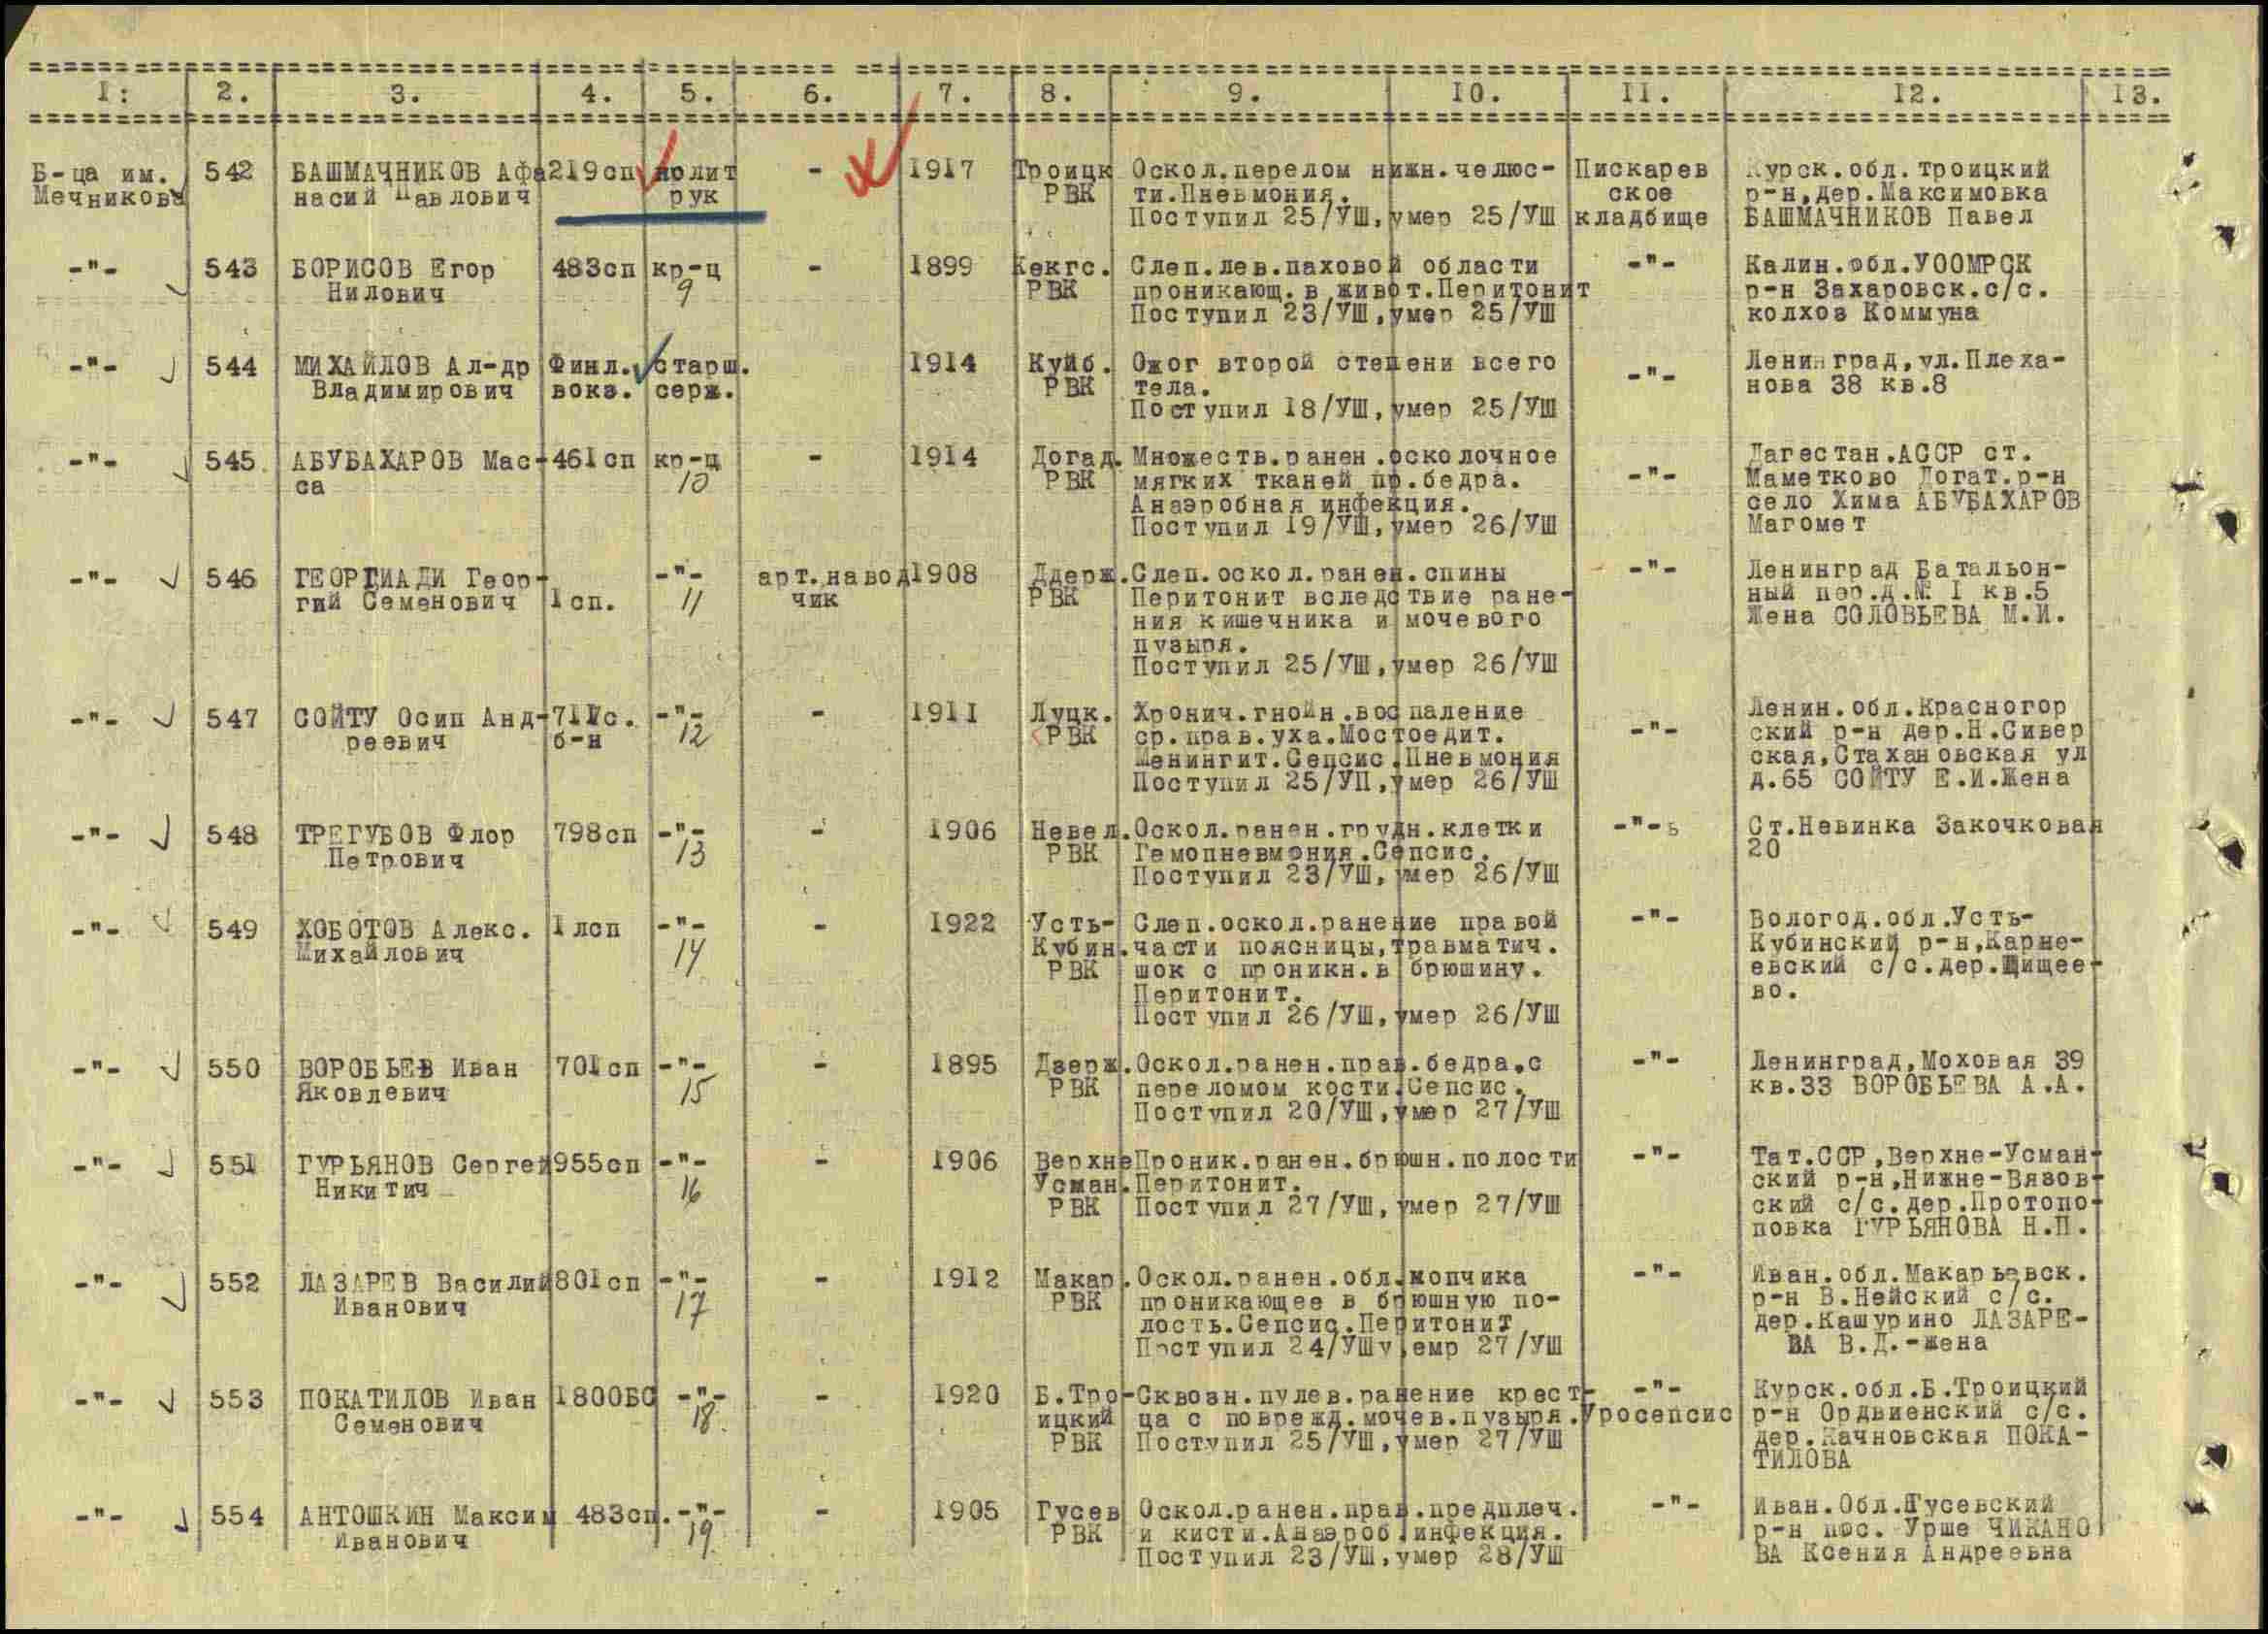 1: 2. 3. 4. 5. 6. 7. 8. 9. 10. 11. 12. 13.
Б-ца им. 542 БАШМАЧНИКОВ Афа 219сп полит - 1917 Троицк Оскол.перелом нижн.челюс- Пискарев Курск.обл.Троицкий
Мечникова насий Павлович рук РВК ти.Пневмония. ское р-н,дер.Максимовка
Поступил 25/УШ,умер 25/УШ кладбище БАШМАЧНИКОВ Павел
-"- 543 БОРИСОВ Егор 483сп кр-ц - 1899 Кекгс. Слеп.лев.паховой области -"- Калин.обл.УООМРСК
Нилович 9 РВК проникающ.в живот.Перитонит р-н Захаровск.с/с.
Поступил 23/УШ,умер 25/УШ колхоз Коммуна
-"- 544 МИХАЙЛОВ Ал-др Финл. старш. 1914 Куйб. Ожог второй степени всего -"- Ленинград,ул.Плеха-
Владимирович вокз. серж. РВК тела. нова 38 кв.8
Поступил 18/УШ,умер 25/УШ
-"- 545 АБУБАХАРОВ Мас- 461сп кр-ц - 1914 Догад. Множеств.ранен.осколочное -"- Дагестан.АССР ст.
са 10 РВК мягких тканей пр.бедра. Маметково Догат.р-н
Анаэробная инфекция. село Хима АБУБАХАРОВ
Поступил 19/УШ,умер 26/УШ Магомет
-"- 546 ГЕОРГИАДИ Геор- -"- арт.навод 1908 Ддерж. Слеп.оскол.ранен.спины -"- Ленинград Батальон-
гий Семенович 1сп. 11 чик РВК Перитонит вследствие ране- ный пер.д.№ 1 кв.5
ния кишечника и мочевого Жена СОЛОВЬЕВА М.И.
пузыря.
Поступил 25/УШ,умер 26/УШ
-"- 547 СОЙТУ Осип Анд- 711с. -"- - 1911 Луцк. Хронич.гнойн.воспаление -"- Ленин.обл.Красногор
реевич б-н 12 РВК ср.прав.уха.Мостоедит. ский р-н дер.Н.Сивер
Менингит.Сепсис.Пневмония ская,Стахановская ул
Поступил 25/УП,умер 26/УШ д.65 СОЙТУ Е.И.Жена
-"- 548 ТРЕГУБОВ Флор 798сп -"- - 1906 Невел. Оскол.ранен.грудн.клетки -"- Ст.Невинка Закочковая
Петрович 13 РВК Гемопневмония.Сепсис. 20
Поступил 23/УШ,умер 26/УШ
-"- 549 ХОБОТОВ Алекс. 1лсп -"- - 1922 Усть- Слеп.оскол.ранение правой -"- Вологод.обл.Усть-
Михайлович 14 Кубин. части поясницы,травматич. Кубинский р-н,Карне-
РВК шок с проникн.в брюшину. евский с/с.дер.Щищее-
Перитонит. во.
Поступил 26/УШ,умер 26/УШ
-"- 550 ВОРОБЬЕВ Иван 701сп -"- - 1895 Дзерж. Оскол.ранен.прав.бедра.с -"- Ленинград,Моховая 39
Яковлевич 15 РВК переломом кости.Сепсис. кв.33 ВОРОБЬЕВА А.А.
Поступил 20/УШ,умер 27/УШ
-"- 551 ГУРЬЯНОВ Сергей 955сп -"- - 1906 Верхне Проник.ранен.брюшн.полости -"- Тат.ССР,Верхне-Усман-
Никитич 16 Усман. Перитонит. ский р-н,Нижне-Вязов-
РВК Поступил 27/УШ,умер 27/УШ ский с/с.дер.Протопо-
повка ГУРЬЯНОВА Н.П.
-"- 552 ЛАЗАРЕВ Василий 801сп -"- - 1912 Макар. Оскол.ранен.обл.копчика -"- Иван.обл.Макарьевск.
Иванович 17 РВК проникающее в брюшную по- р-н В.Нейский с/с.
лость.Сепсис.Перитонит дер.Кашурино ЛАЗАРЕ-
Поступил 24/УШу.емр 27/УШ ВА В.Д.-жена
-"- 553 ПОКАТИЛОВ Иван 1800БС -"- - 1920 Б.Тро- Сквозн.пулев.ранение крест- -"- Курск.обл.Б.Троицкий
Семенович 18 ицкий ца с поврежд.мочев.пузыря.Уросепсис р-н Ордвиенский с/с.
РВК Поступил 25/УШ,умер 27/УШ дер.Качновская ПОКА-
ТИЛОВА
-"- 554 АНТОШКИН Максим 483сп. -"- - 1905 Гусев Оскол.ранен.прав.предплеч. -"- Иван.Обл.Гусевский
Иванович 19 РВК и кисти.Анаэроб.инфекция. р-н пос. Урше ЧИКАНО
Поступил 23/УШ,умер 28/УШ ВА Ксения Андреевна